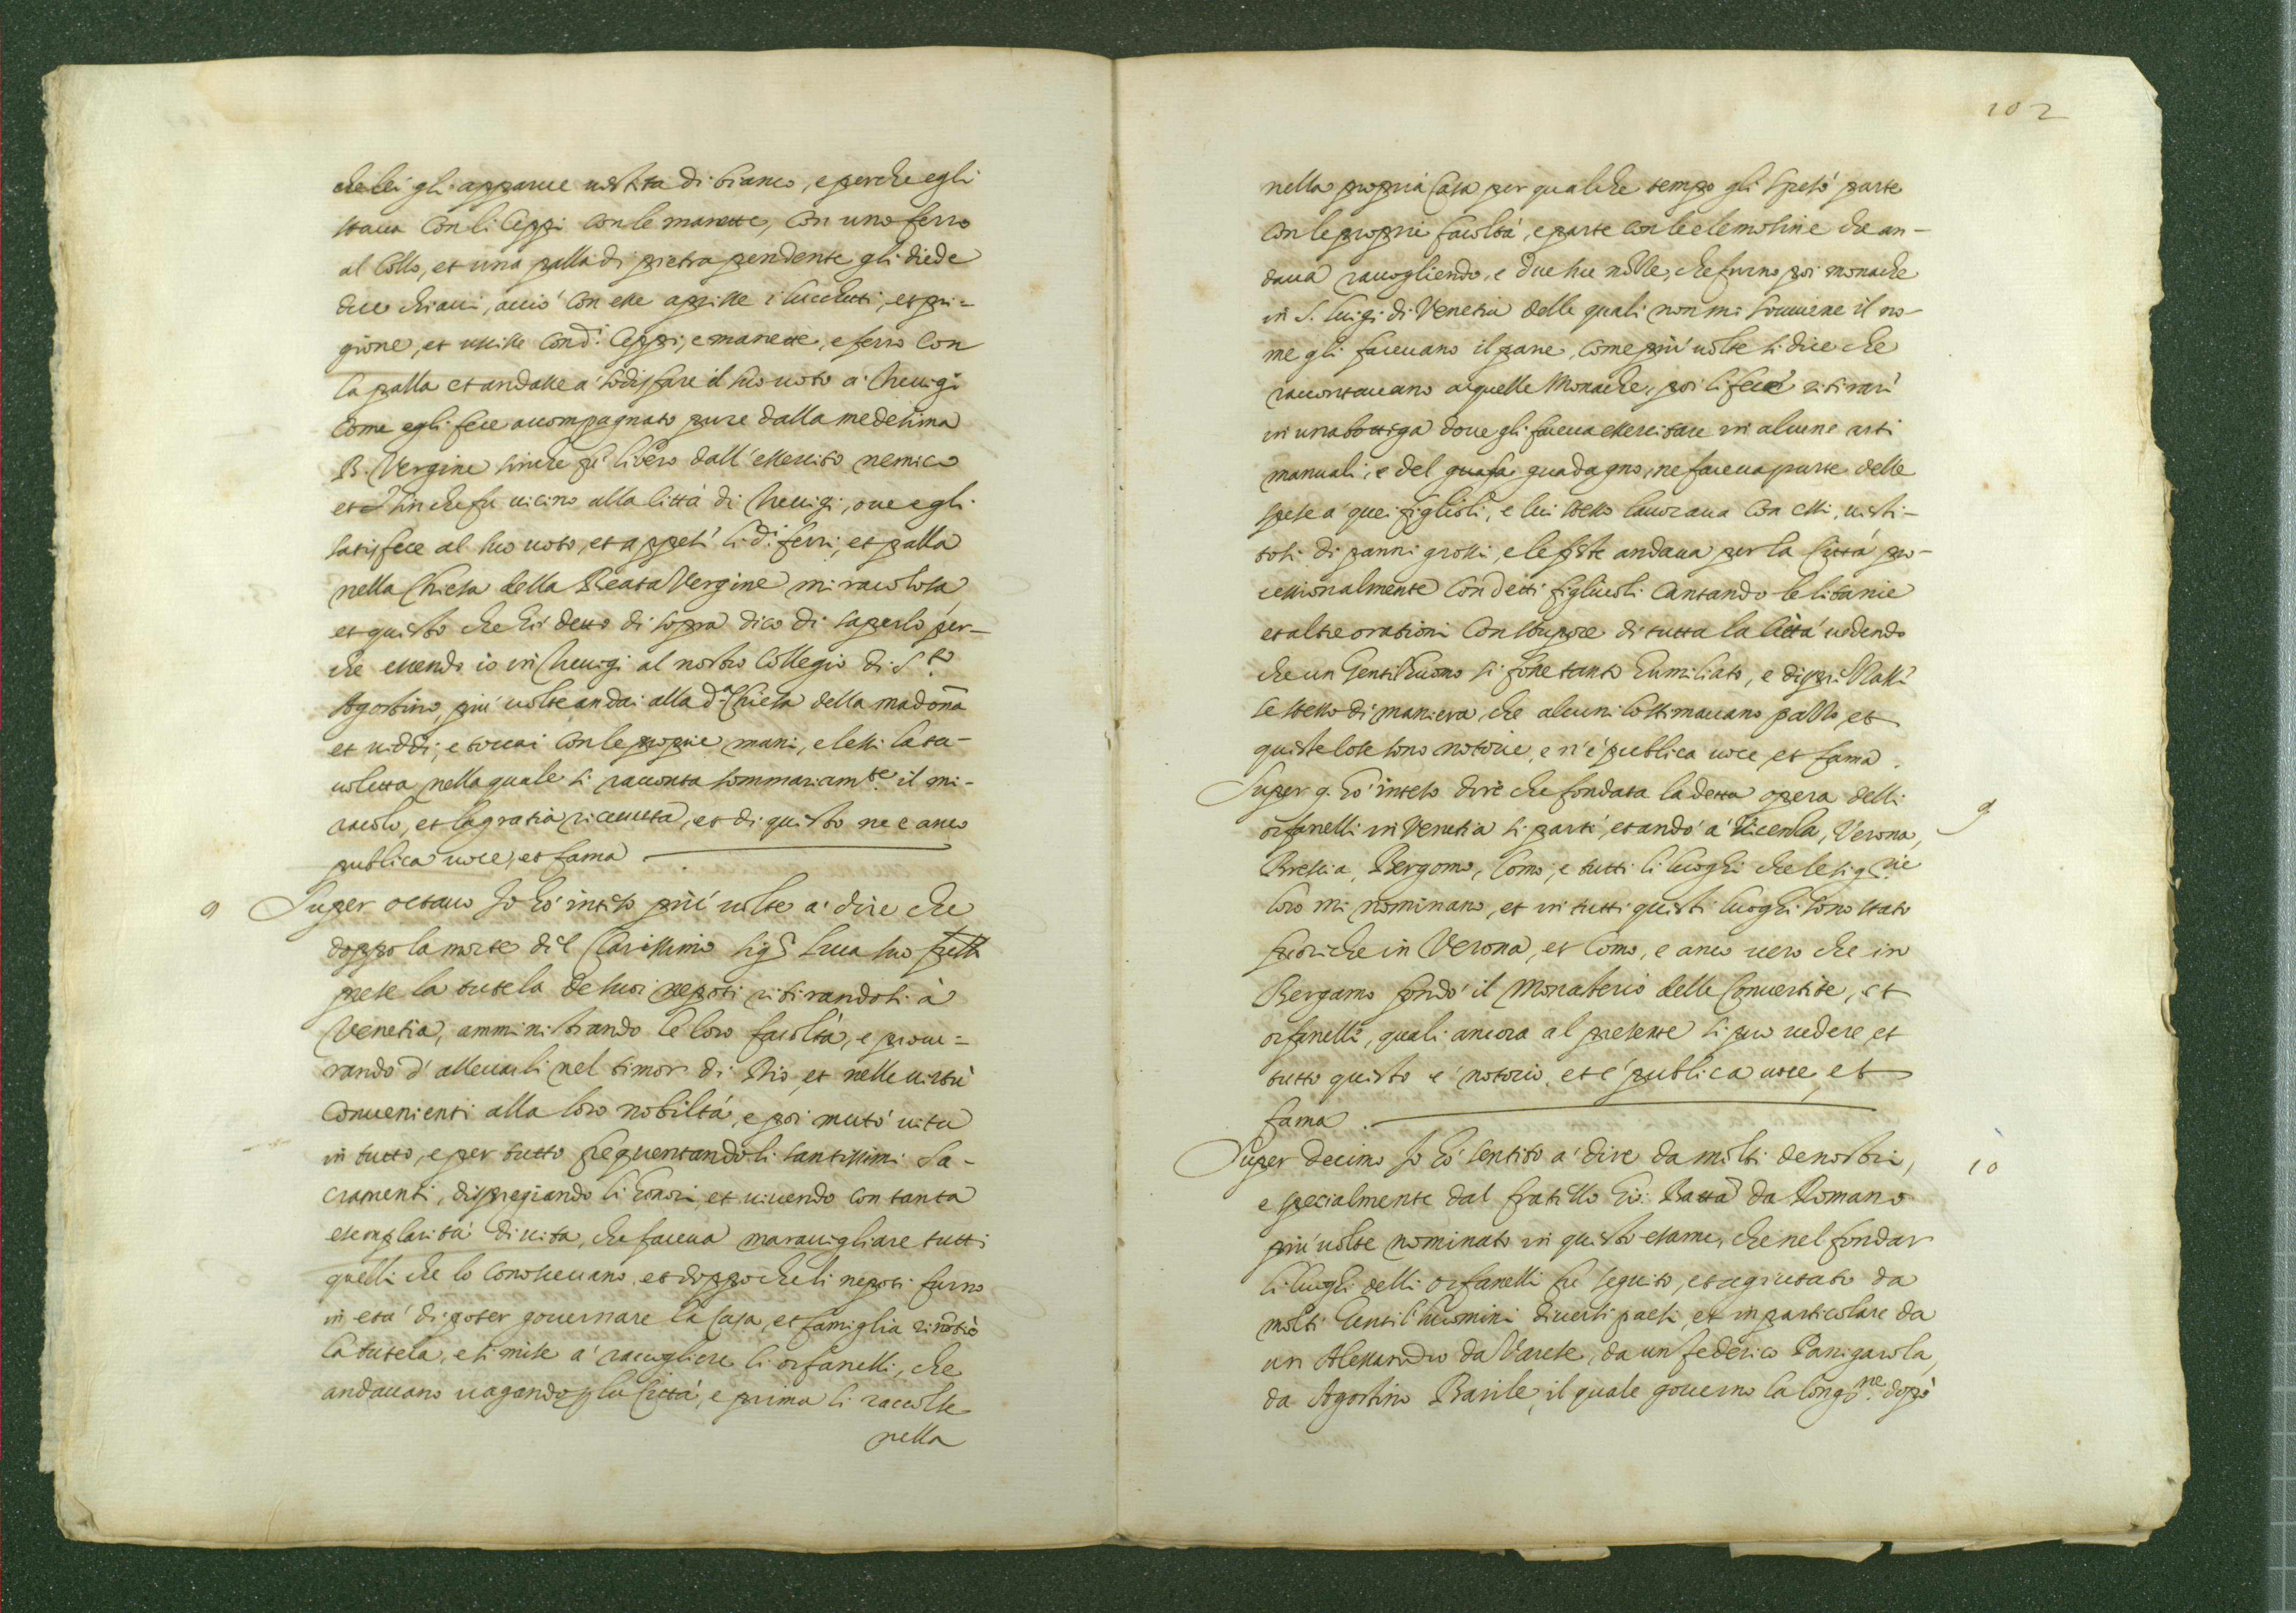 che lei gli apparue uestita di bianco, e perche egli
staua con li Ceppi con le manette, con uno ferro
al Collo, et una palla di pietra pendente gli diede
due chiaui, acciò con esse aprisse i lucchetti, et pri-
gione, et uscisse con d.i Ceppi, e manette, e ferro con
la palla et andasse à sodisfare il suo uoto à Treuigi
come egli fece accompagnato pure dalla medesima
B. Vergine sinche fu libero dall'essercito nemico
et sin che fu uicino alla Città di Treuigi, oue egli
satisfece al suo uoto, et appesi li d.i ferri, et palla
nella Chiesa della Beata Vergine miracolosa,
et questo che hò detto di sopra dico di saperlo per-
che essendo io in Treuigi al nostro Collegio di S.to
Agostino, più uolte andai alla d.a Chiesa della madona
et uiddi, e toccai con le proprie mani, e lessi la ta-
uoletta nella quale si racconta sommariam.te il mi-
racolo, et la gratia riceuuta, et di questo ne e anco
publica uoce, et fama
9 Super octauo Io hò inteso più uolte à dire che
doppo la morte del Clarissimo sig.r Luca suo frett
prese la tutela de suoi nepoti ritirandosi à
Venetia, amministrando le loro facoltà, e procu=
rando d'alleuarli nel timor di Dio, et nelle uirtù
conuenienti alla loro nobiltà, e poi mutò uita
in tutto, e per tutto frequentando li santissimi Sa-
cramenti, dispregiando li honori, et uiuendo con tanta
esemplarità di uita, che faceua marauigliare tutti
quelli che lo conosceuano, et doppo che li nepoti furno
in età di poter gouernare la Casa, et famiglia rinotiò
la tutela, e si mise à raccogliere li orfanelli, che
andauano uagando p la Città, e prima li raccolse
nella
102
nella propria Casa per qualche tempo gli spesò parte
con le proprie facoltà, e parte con le elemosine che an-
daua raccogliendo, e due sue nezze, che furno poi monache
in S. Luigi di Venetia delle quali non mi souuiene il no-
me gli faceuano il pane, come più uolte si dice che
raccontauano à quelle Monache, poi li fece ritirari
in una bottiga doue gli faceua essercitare in alcune arti
manuali, e del guafa guadagno, ne faceua parte delle
spese à quei figlioli, e lui stesso lauoraua con essi, uesti-
tosi di panni grossi, e le feste andaua per la Città pro-
cessionalmente con detti figliuoli cantando le litanie
et altre orationi con stupore di tutta la Città uedendo
che un Gentilhuomo si fosse tanto humiliato, e disprezzasse
se stesso di maniera, che alcuni lo stimauano pazzo, et
queste cose sono notorie, e n'é publica uoce, et fama.
Super 9. hò inteso dire che fondata la detta opera delli 9
orfanelli in Venetia si partì, et andò à Vicenza, Verona,
Brescia, Bergomo, Como, e tutti li luoghi che le sig.rie
loro mi nominano, et in tutti questi luoghi sono stato
fuori che in Verona, et Como, e anco uero che in
Bergamo fondò il Monasterio delle Conuertite, et
orfanelle, quali ancora al presente si puo uedere, et
tutto questo e' notorio, et é publica uoce, et
fama.
Super decimo Io hò sentito a' dire da molti de nostri, 10
e specialmente dal fratello Gio: Batta da Romano
più uolte nominato in questo esame, che nel fondar
li luoghi delli orfanelli fu seguito, et agiutato da
molti Gentil'huomini diuersi paesi, et in particolare da
un Alessandro da Varese, da un federico Panigarola,
da Agostino Barile, il quale gouerno la Congo.ne dopò